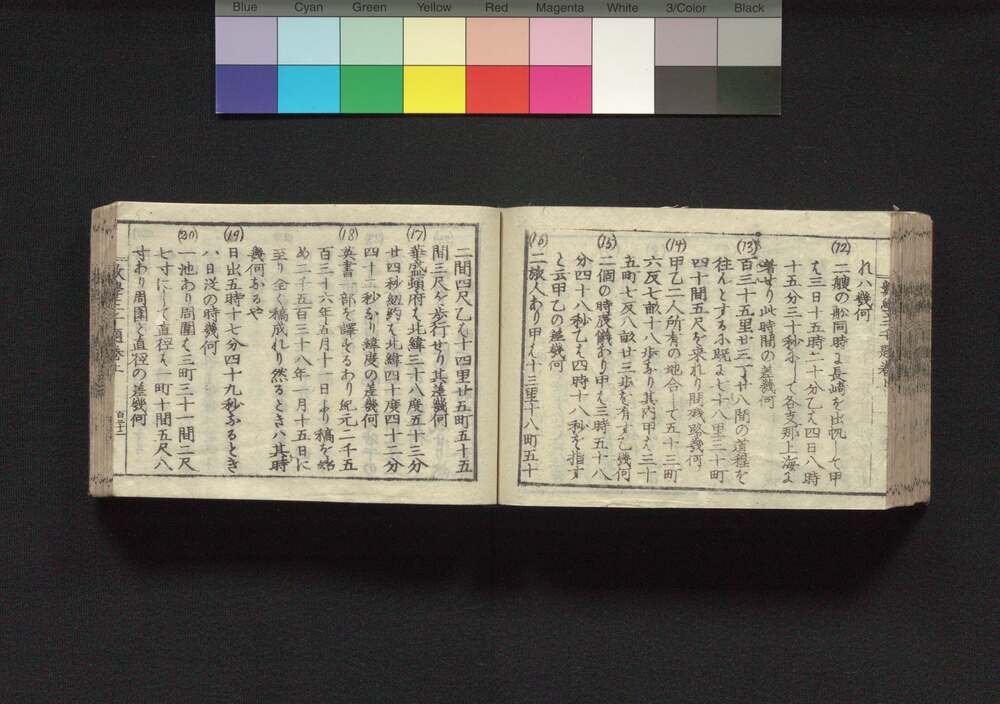 Blue Cyan Green Yellow Red Magenta White 3/Color Black
れハ幾何
(12) 二艘の舩同時に長崎を出帆して甲
ハ三日十五時二十分乙ハ四日八時
十五分三十秒にして各支那上海に
着せり此時間の差幾何
(13) 百三十五里廿三丁廿八間の道程を
往んとするに既に七十八里三十町
四十間五尺を来れり間残路幾何
(14) 甲乙二人所有の地合して五十三町
六反七畝十八歩あり其内甲ハ三十
五町七反八畝廿三歩を有す乙幾何
(15) 二個の時辰儀あり甲ハ三時五十八
分四十八秒乙ハ四時十八秒を指す
と云甲乙の差幾何
(16) 二旅人あり甲ハ十三里十八町五十
二間四尺乙ハ十四里廿五町五十五
間三尺を歩行せり其差幾何
(17) 華盛頓府ハ北緯三十八度五十三分
廿四秒紐約ハ北緯四十度四十二分
四十三秒なり緯度の差幾何
(18) 英書一部を譯するあり紀元二千五
百三十六年五月十一日より稿を始
め二千五百三十八年一月十五日に
至り全く稿成れり然るときハ其時
幾何なるや
(19) 日出五時十七分四十九秒なるとき
ハ日没の時幾何
(20) 一池あり周圍ハ三町三十一間二尺
七寸にして直径ハ一町十間五尺八
寸あり周圍と直径の差幾何